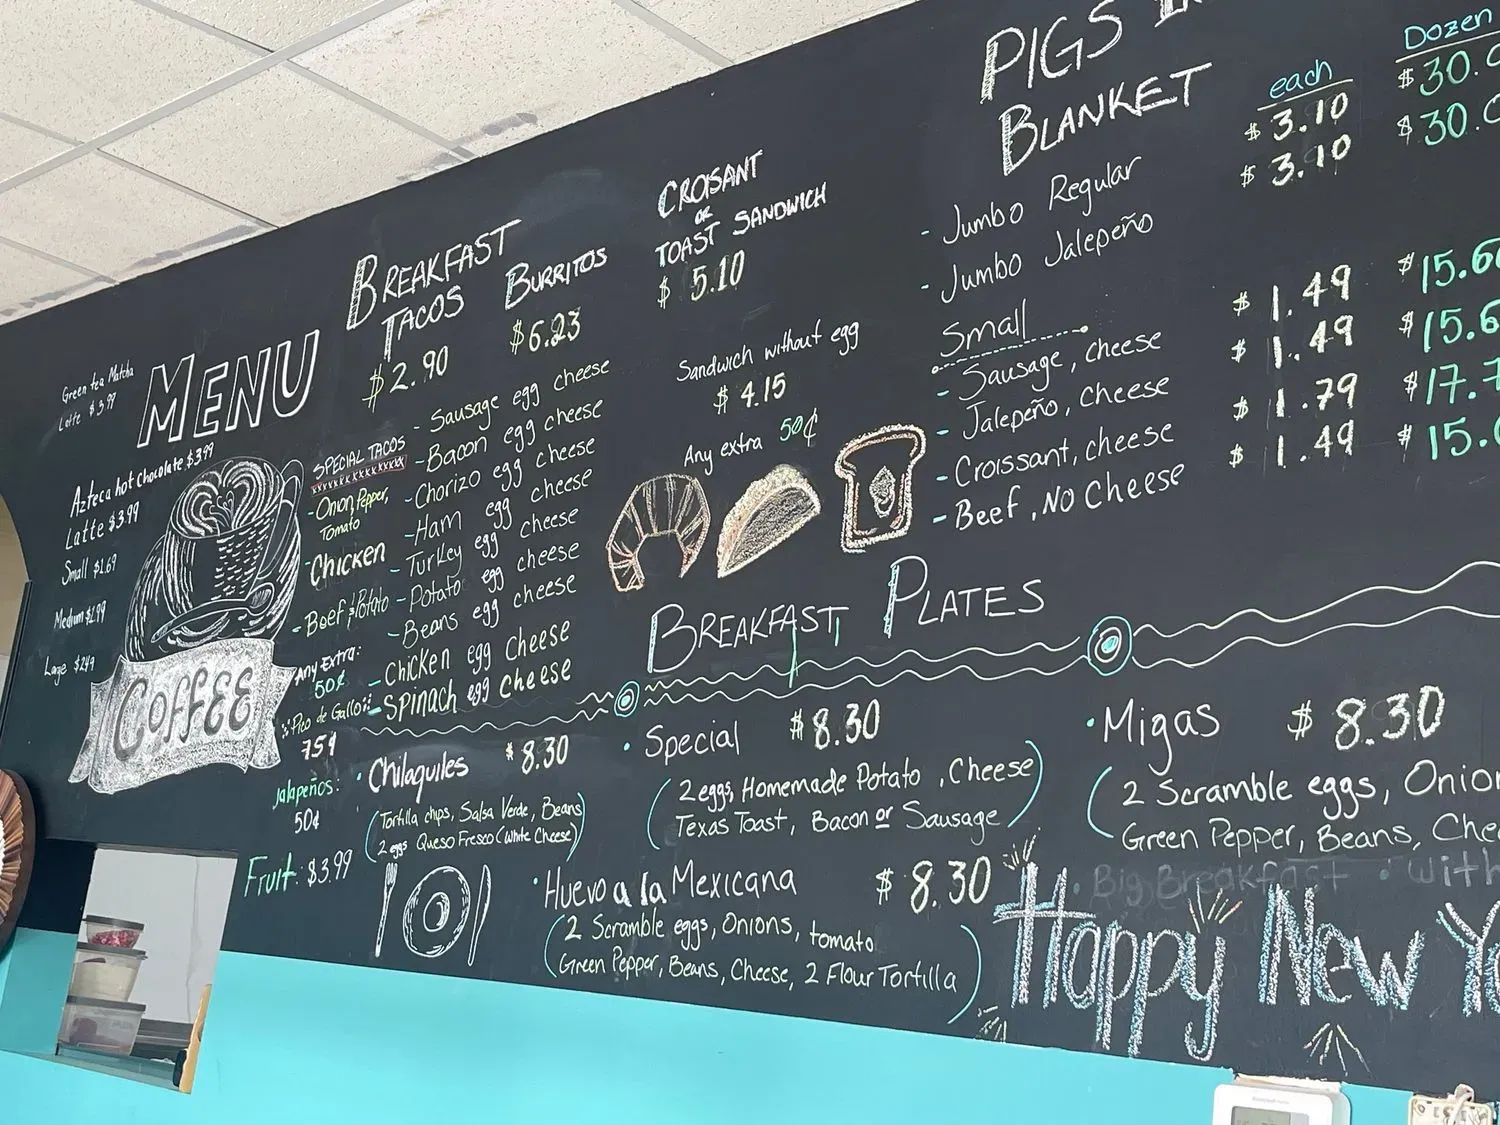 Green tea Matcha
Latte $3.99
MENU
Azteca hot chocolate $3.99
Latte $3.99
Small $1.69
Medium $1.99
Large $2.49
COFFEE
BREAKFAST
TACOS
$2.90
BURRITOS
$6.23
- Sausage egg cheese
- Bacon egg cheese
- Chorizo egg cheese
- Ham egg cheese
- Turkey egg cheese
- Potato egg cheese
- Beans egg cheese
- Chicken egg cheese
- Spinach egg cheese
SPECIAL TACOS
xxxxxxxxxxxx
- Onion, Pepper,
Tomato
- Chicken
- Beef & Potato
Any Extra:
50¢
Pico de Gallo:
75¢
Jalapeños:
50¢
Fruit: $3.99
CROISANT
OR
TOAST SANDWICH
$5.10
Sandwich without egg
$4.15
Any extra 50¢
PIGS
BLANKET
each
Dozen
- Jumbo Regular $3.10 $30.
- Jumbo Jalepeño $3.10 $30.
Small
- Sausage, cheese $1.49 $15.6
- Jalepeño, cheese $1.49 $15.6
- Croissant, cheese $1.79 $17.7
- Beef, No Cheese $1.49 $15.
BREAKFAST PLATES
• Chilaquiles $8.30
(Tortilla chips, Salsa Verde, Beans
2 eggs Queso Fresco (White Cheese))
• Special $8.30
(2 eggs, Homemade Potato, Cheese
Texas Toast, Bacon or Sausage)
• Migas $8.30
(2 Scramble eggs, Onion
Green Pepper, Beans, Chee
• Huevo a la Mexicana $8.30
(2 Scramble eggs, Onions, tomato
Green Pepper, Beans, Cheese, 2 Flour Tortilla)
• Big Breakfast • with
Happy New Y